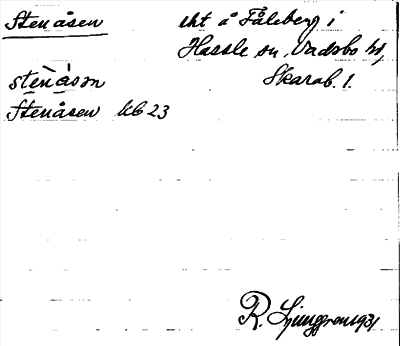 Stenåsen
skt å Fåleberg i
Hassle sn, Vadsbo hd,
Skarab. l.
stènå̀sən
Stenåsen kb 23
R. Ljunggren 1931